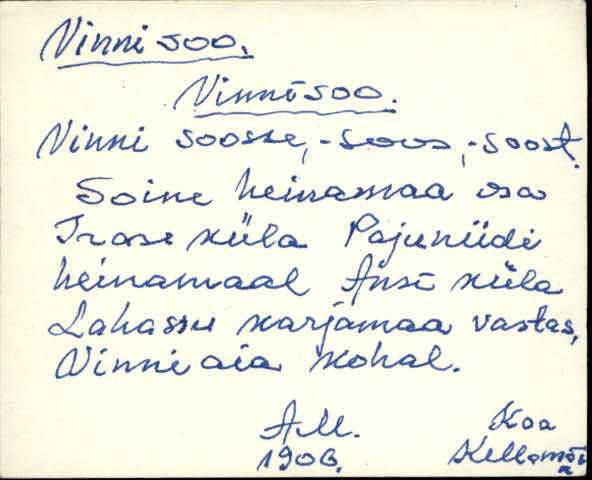 Vinni soo.
Vinnisoo.
Vinni soosse, -soos, -soost.
Soine heinamaa osa
Irase küla Pajuniidi
heinamaal Änsi küla
Lahassu karjamaa vastas,
Vinni aia kohal.
A.M. Koa
1906.